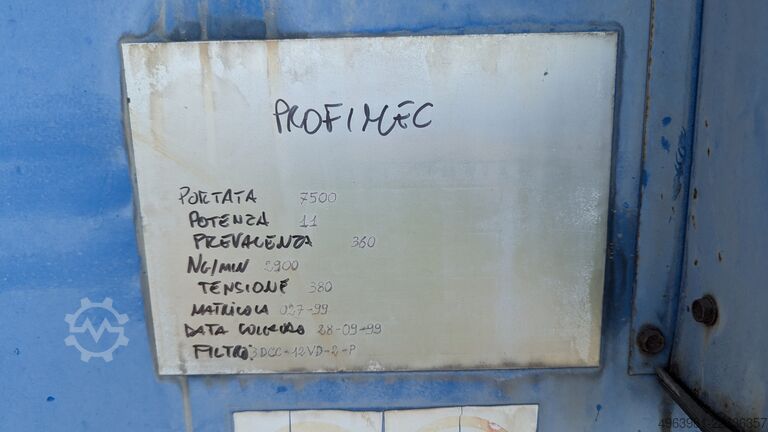 PROFIMEC
PORTATA 7500
POTENZA 11
PREVALENZA 360
NG/MIN 2900
TENSIONE 380
MATRICOLA 027-99
DATA COLLAUDO 28-09-99
FILTRO: 3DCC-12VD-2-P